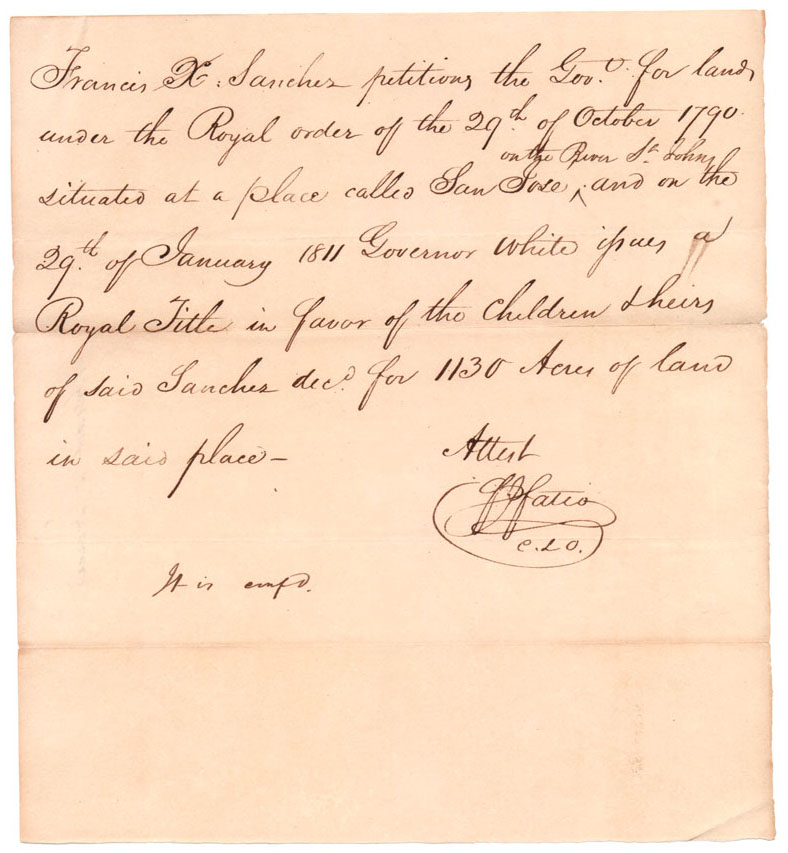 Francis X. Sanchez petitions the Govt. for lands
under the Royal order of the 29th. of October 1790.
on the River St. Johns
situated at a place called San Jose, ^ and on the
29th. of January 1811 Governor White issues a
Royal Title in favor of the children & heirs
of said Sanchez decd. for 1130 Acres of land
in said place —
Attest
F J Fatio
C. L O.
It is confd.